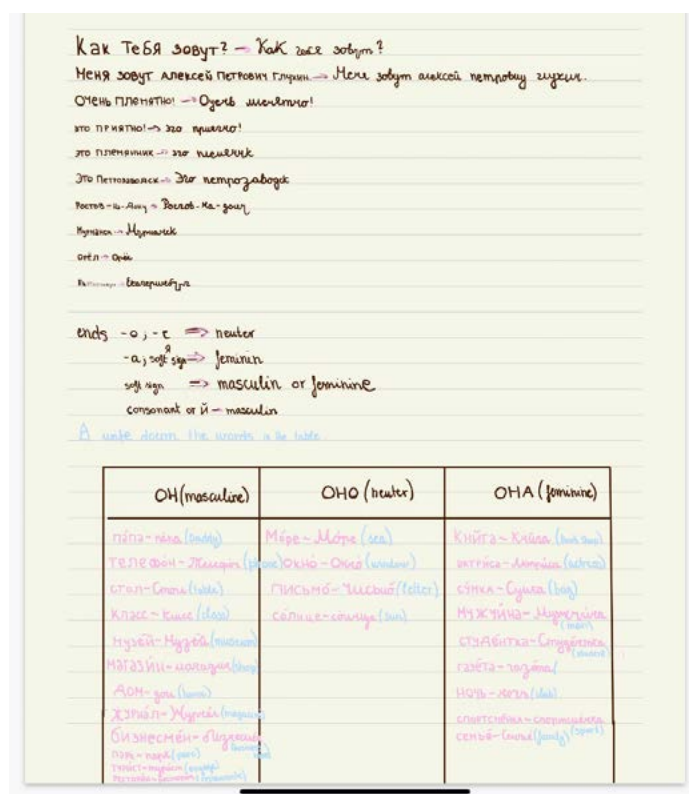 Как тебя зовут? → Как тебя зовут?
Меня зовут Алексей Петрович → Меня зовут алексей петрович
очень
это приятно! →
это племянник → это
Это Петрозаводск → Это петрозаводск
Ростов-на-Дону → Ростов-на-дону
Мурманск → Мурманск
орёл → орёл
ends -о; -е ⇒ neuter
-а; я soft sign ⇒ feminin
soft sign ⇒ masculin or feminine
consonant or й – masculin
A write down the words in the table
ОН (masculine) ОНО (neuter) ОНА (feminine)
па́па – папа (daddy) Мо́ре – Мо́ре (sea) Кни́га – Книга
телефо́н – Телефон (phone) окно́ – Окно́ (window) актри́са – Актриса (actress)
стол – Столь (table) письмо́ – письмо́ (letter) су́мка – Сумка (bag)
класс – класс (class) со́лнце – солнце (sun) мужчи́на – Мужчина (man)
музе́й – Музей (museum) студе́нтка – Студентка (student)
магази́н – магазин (shop) газе́та – газета
дом – дом (home) ночь – ночь
журна́л – Журнал (magazine) спортсме́нка – спортсменка (sport)
бизнесме́н – бизнесмен семья́ – Семья (family)
парк – парк (park)
тури́ст – турист